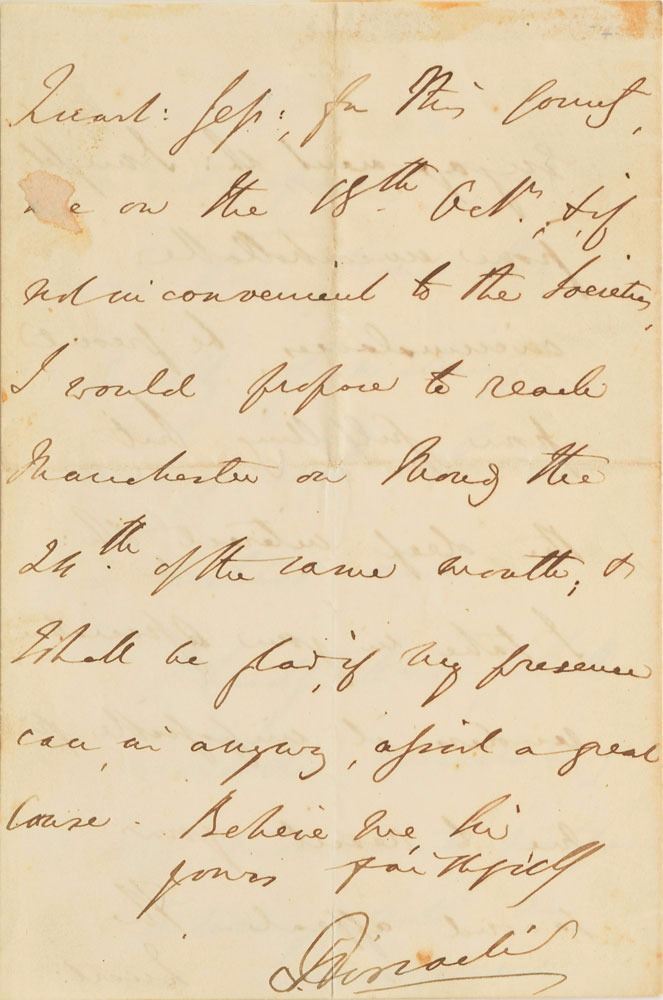 Quart: Sess:, for this County,
are on the 18th Octr.; & if
not inconvenient to the Society,
I would propose to reach
Manchester on Mondy the
24th of the same month; &
I shall be glad, if my presence
can, in anyway, assist a great
cause. Believe me, Sir
yours faithfully
Disraeli